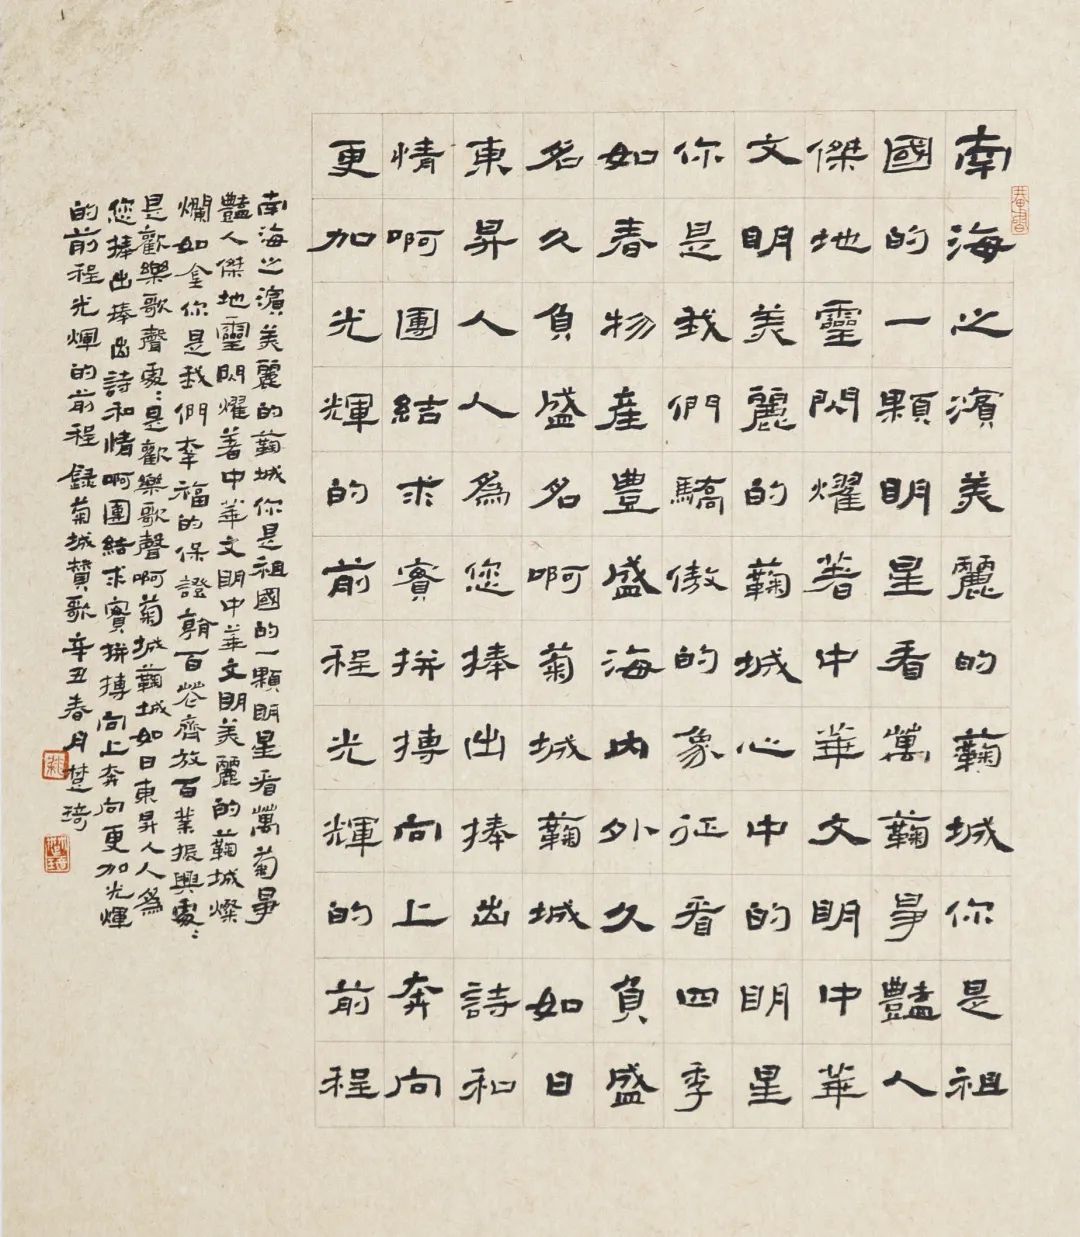 南海之濱美麗的蘜城你是祖
國的一顆明星看萬蘜爭豔人
傑地靈閃耀著中華文明中華
文明美麗的蘜城心中的明星
你是我們驕傲的象征看四季
如春物產豐盛海內外久負盛
名久負盛名啊菊城蘜城如日
東昇人人爲您捧出捧出詩和
情啊團結求實拼搏向上奔向
更加光輝的前程光輝的前程
南海之濱美麗的蘜城你是祖國的一顆明星看萬菊爭
豔人傑地靈閃耀著中華文明中華文明美麗的蘜城燦
爛如金你是我們幸福的保證百花齊放百業振興處:
是歡樂歌聲處:是歡樂歌聲啊菊城蘜城如日東昇人人爲
您捧出捧出詩和情啊團結求實拼搏向上奔向更加光輝
的前程光輝的前程 錄菊城贊歌辛丑春月楚琦